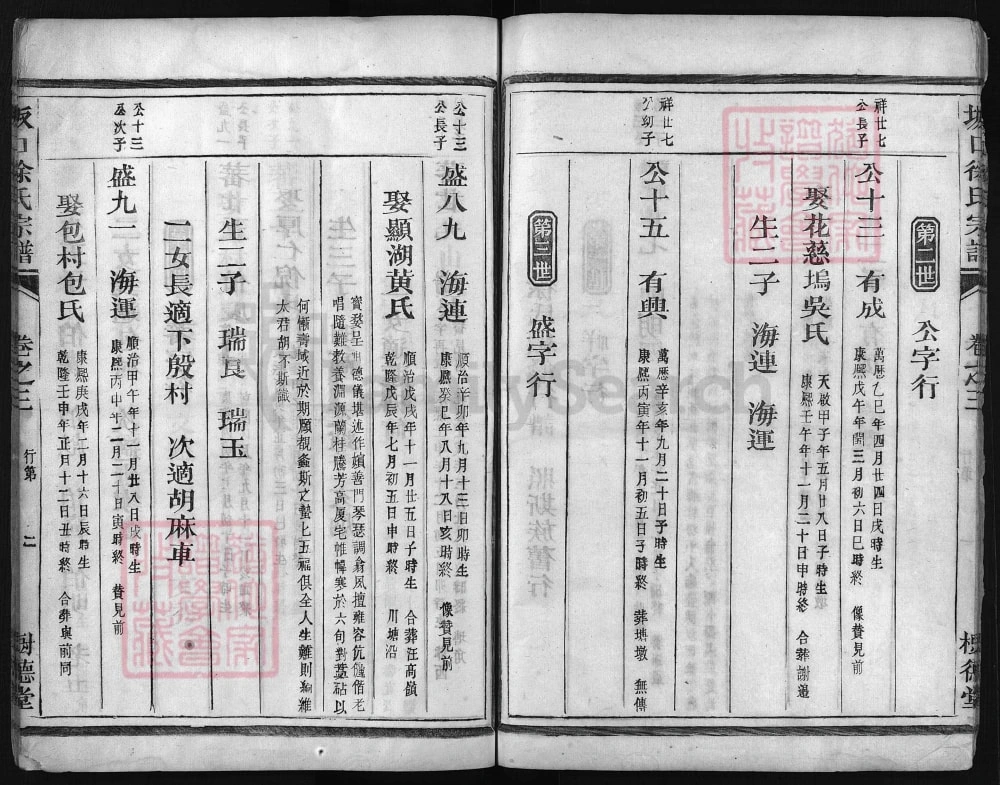 第二世
公字行
祥廿七
公長子
公十三 有成
萬曆乙巳年四月廿四日戌時生
康熙戊午年閏三月初六日巳時終 像贊見前
娶花慈塢吳氏
天啟甲子年五月廿八日子時生
康熙壬午年十一月二十日申時終 合葬謝邉
生二子 海連 海運
祥廿七
公幼子
公十五 有興
萬曆辛亥年九月二十日子時生
康熙丙寅年十一月初五日子時終 葬塘墩 無傳
第三世
盛字行
公十三
公長子
盛八九 海連
順治辛卯年九月十三日卯時生
康熙癸巳年八月十八日亥時終 像贊見前
娶顯湖黄氏
順治戊戌年十一月廿五日子時生 合葬汪高嶺
乾隆戊辰年七月初五日申時終 川塘沿
寳婺呈 德儀堪述作嬪善門琴瑟調翕夙擅雍容伉儷偕老
唱隨難教養淵源蘭桂騰芳高厦宅帷幃寒於六旬對藁砧以
何慚壽域近於期願覩螽斯之蟄七五福俱全人生難則
太君胡不斯議
生二子 瑞良 瑞玉
二女長適下殷村 次適胡麻車
公十三
公次子
盛九一 海運
順治甲午年十一月廿八日戌時生
康熙丙申年二月二十日寅時終 贊見前
娶包村包氏
康熙庚戌年二月十六日辰時生
乾隆壬申年正月十二日丑時終 合葬與前同
徐氏宗譜
卷之三
行第
二
樹德堂